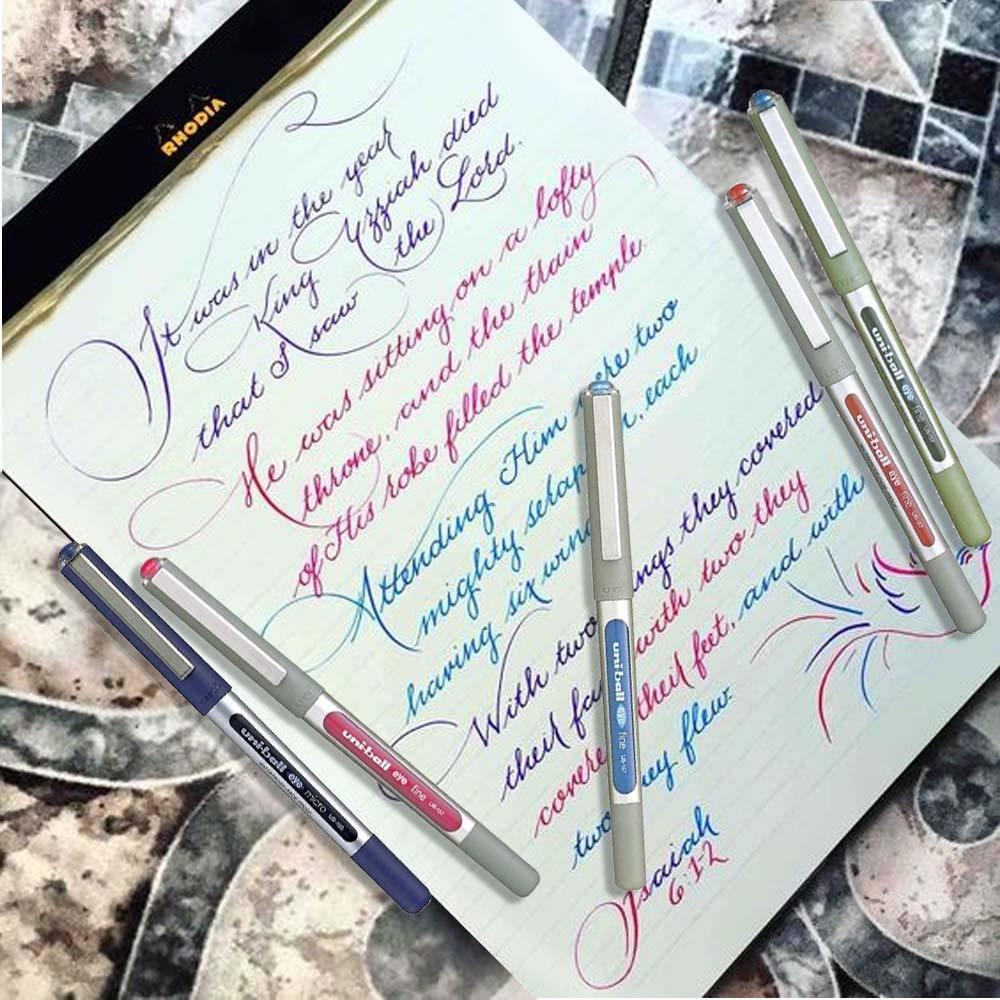 RHODIA
It was in the year
King Uzziah died
that I saw the Lord.
He was sitting on a lofty
throne, and the train
of His robe filled the temple.
Attending Him were two
mighty seraph, each
having six wing
With two wings they covered
their fa with two they
covere their feet, and with
two they flew.
Isaiah
6:1-2
uni-ball eye micro UB-150
uni-ball eye fine UB-157
uni-ball eye fine UB-157
uni-ball eye fine UB-157
uni-ball eye fine UB-157